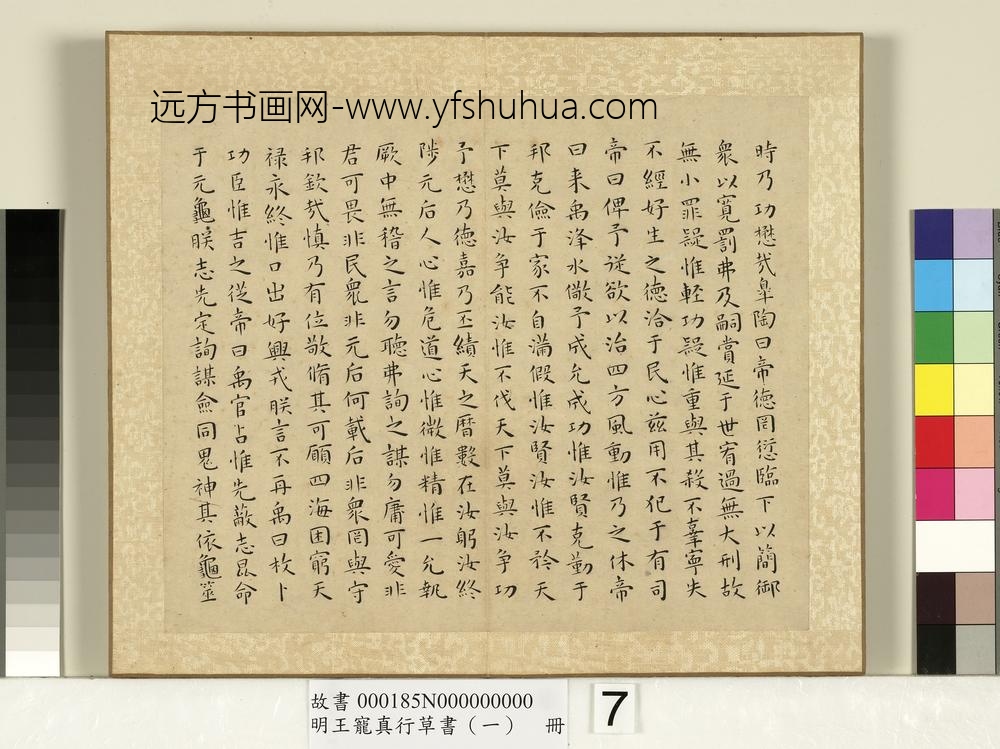 远方书画网-www.yfshuhua.com
時乃功懋哉臯陶曰帝德罔愆臨下以簡御
衆以寬罰弗及嗣賞延于世宥過無大刑故
無小罪疑惟輕功疑惟重與其殺不辜寧失
不經好生之德洽于民心兹用不犯于有司
帝曰俾予從欲以治四方風動惟乃之休帝
曰来禹洚水儆予成允成功惟汝賢克勤于
邦克儉于家不自滿假惟汝賢汝惟不矜天
下莫與汝争能汝惟不伐天下莫與汝争功
予懋乃德嘉乃丕績天之曆數在汝躬汝終
陟元后人心惟危道心惟微惟精惟一允執
厥中無稽之言勿聽弗詢之謀勿庸可愛非
君可畏非民衆非元后何載后非衆罔與守
邦欽哉慎乃有位敬脩其可願四海困窮天
禄永終惟口出好興戎朕言不再禹曰枚卜
功臣惟吉之從帝曰禹官占惟先蔽志昆命
于元龜朕志先定詢謀僉同鬼神其依龜筮
故書 000185N000000000
明王寵真行草書（一） 冊
7